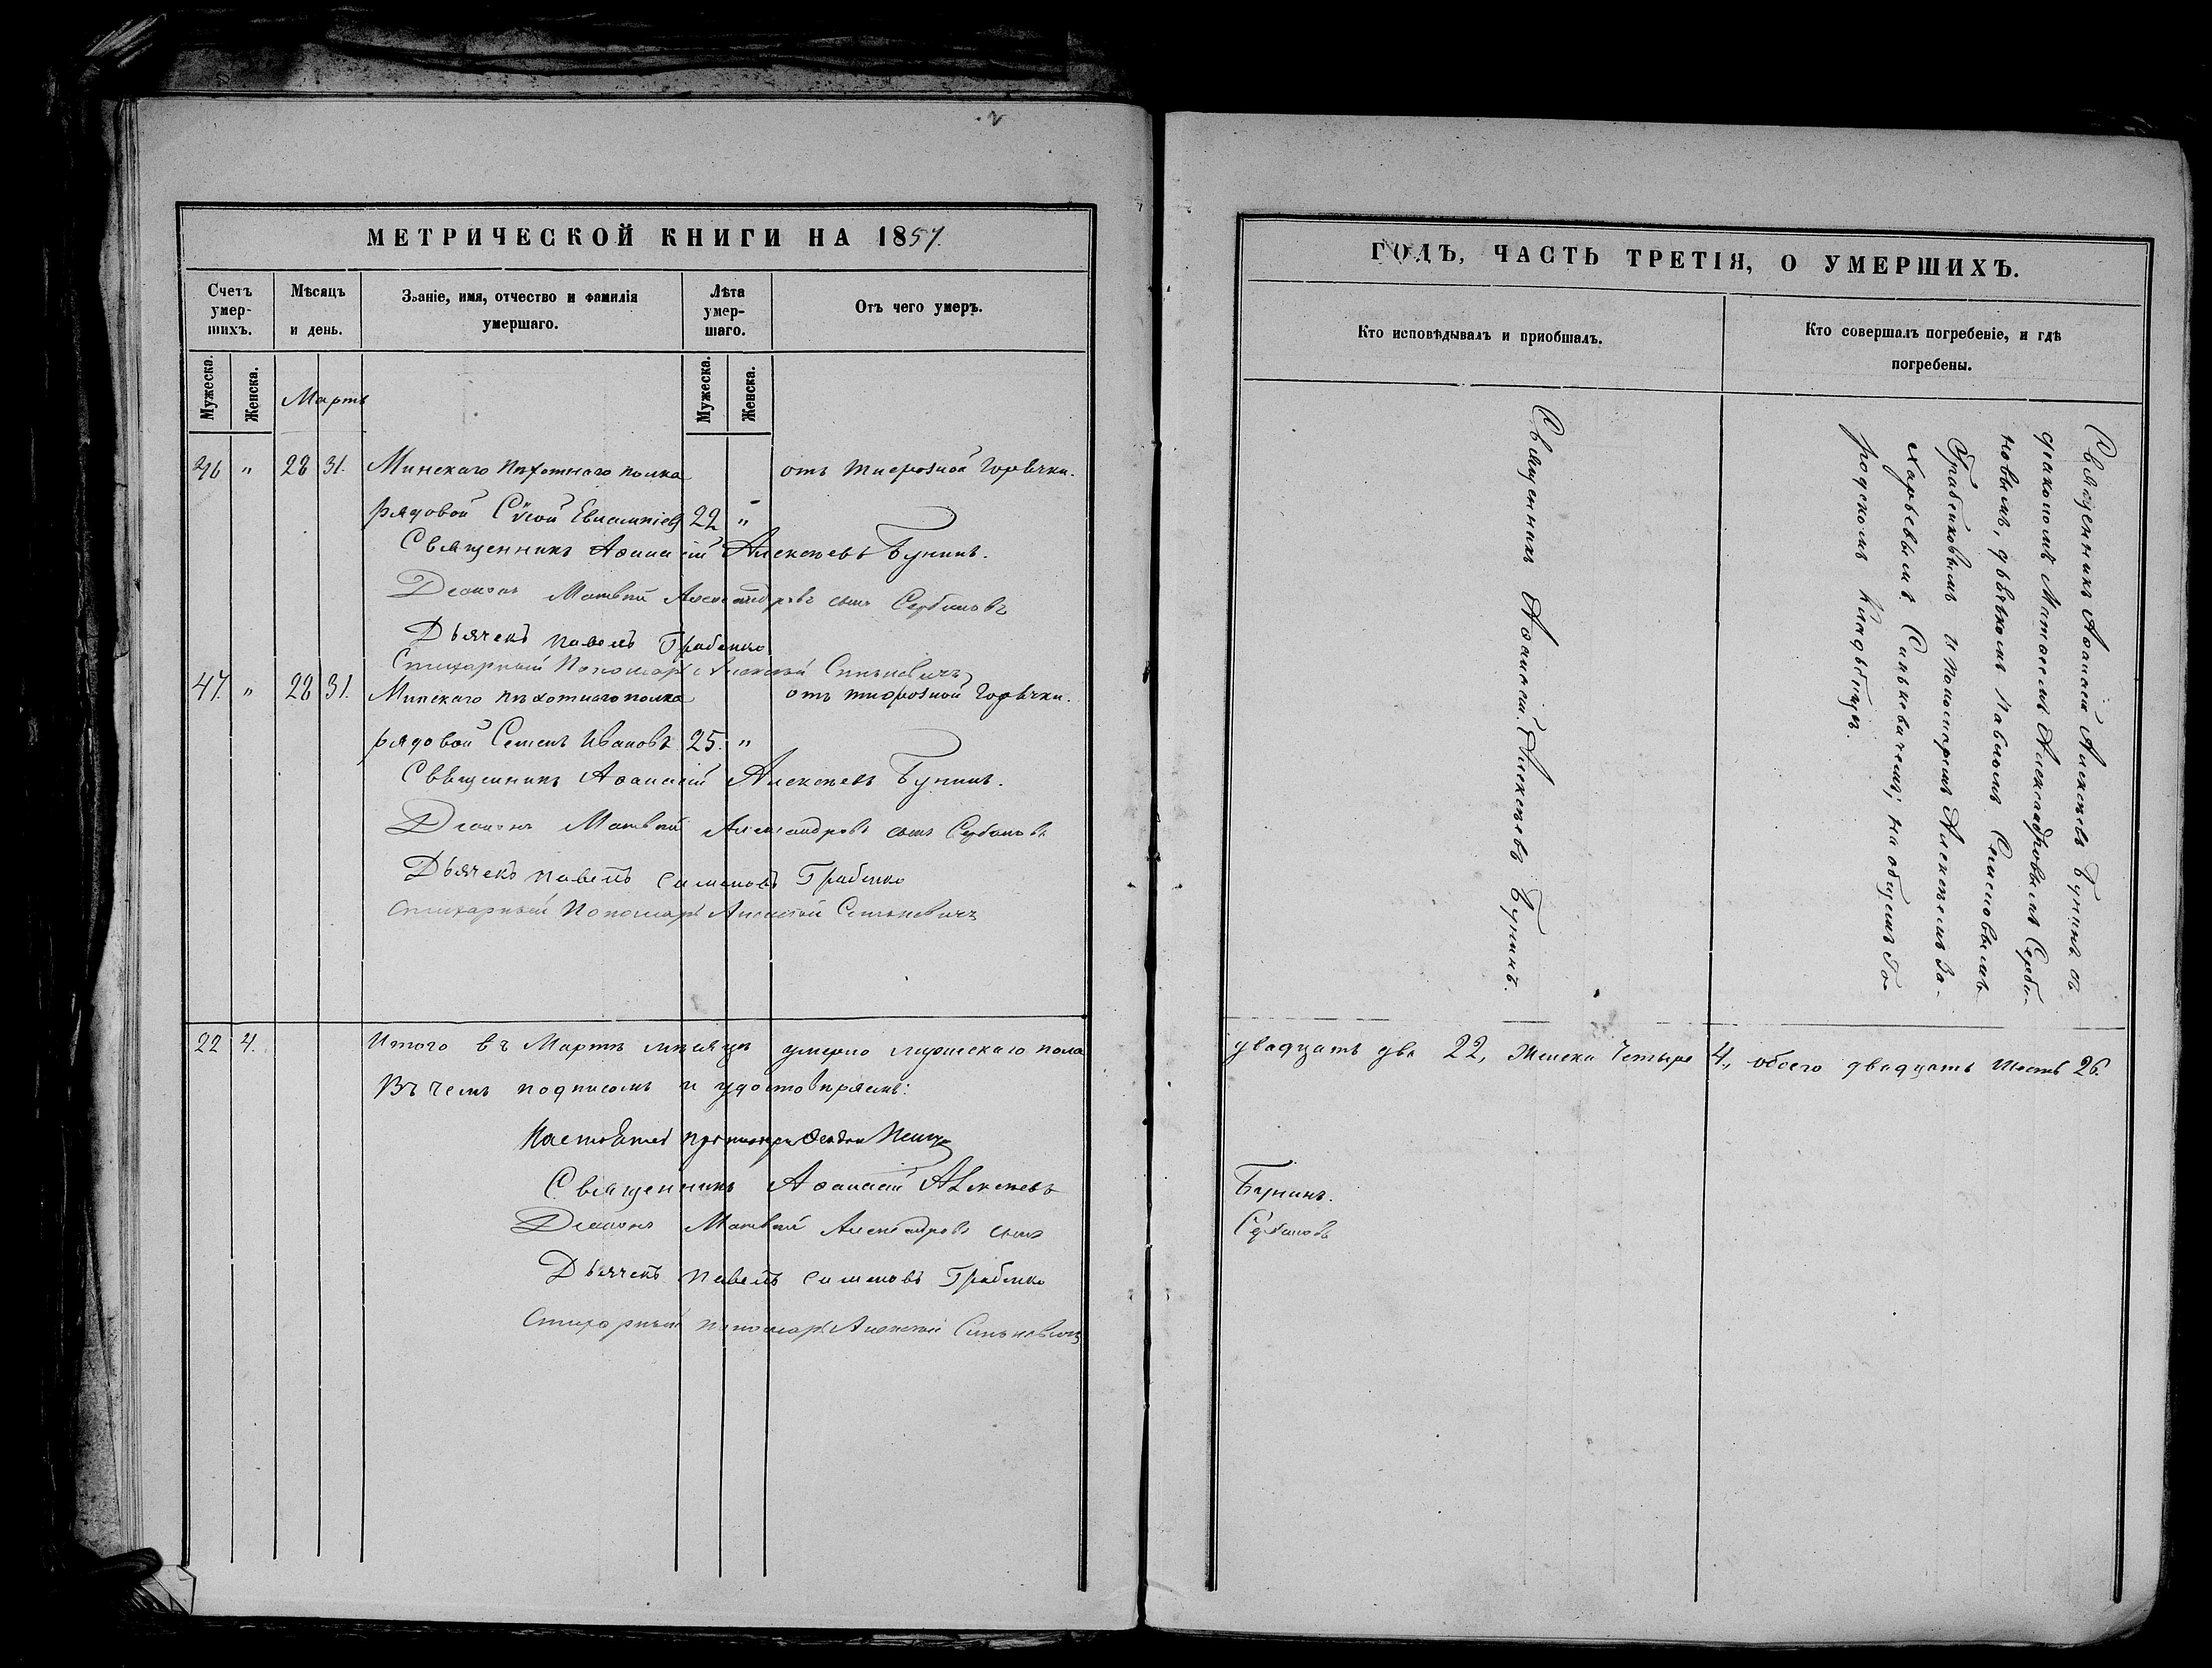 МЕТРИЧЕСКОЙ КНИГИ НА 1857.
Счетъ умер-шихъ.
Мѣсяцъ и день.
Званіе, имя, отчество и фамилія умершаго.
Лѣта умер-шаго.
Отъ чего умеръ.
Мужеска.
Женска.
Мартъ
Мужеска.
Женска.
46 " 28 31. Минскаго пѣхотнаго полка отъ тифозной горячки.
рядовой Евлампіев 22 "
Священникъ Аѳанасій Алексѣевъ Бунинъ.
Діаконъ Матвѣй Александровъ сынъ Сербиновъ
Дьячекъ Павелъ Грабенко
Стихарный Пономарь Алексѣй Синькевичъ
47. " 28 31. Минскаго пѣхотнаго полка отъ тифозной горячки.
рядовой Семенъ Ивановъ 25. "
Священникъ Аѳанасій Алексѣевъ Бунинъ.
Діаконъ Матвѣй Александровъ сынъ Сербиновъ
Дьячекъ Павелъ Семеновъ Грабенко
Стихарный Пономарь Алексѣй Синькевичъ
22 4. Итого въ Мартѣ мѣсяцѣ умерло мужескаго пола
Въ чемъ подписомъ и удостовѣряемъ:
Настоятель
Священникъ Аѳанасій Алексѣевъ
Діаконъ Матвѣй Александровъ сынъ
Дьячекъ Павелъ Семеновъ Грабенко
Стихарный пономарь Алексѣй Синькевичъ
ГОДЪ, ЧАСТЬ ТРЕТІЯ, О УМЕРШИХЪ.
Кто исповѣдывалъ и пріобщалъ.
Кто совершалъ погребеніе, и гдѣ
погребены.
Священникъ Аѳанасій Алексѣевъ Бунинъ.
Священникъ Аѳанасій Алексѣевъ Бунинъ съ
діакономъ Матѳеемъ Александровымъ Серби-
новымъ, дьячкомъ Павломъ Семеновымъ
Грабенковымъ и пономаремъ Алексѣемъ За-
харьевымъ Синькевичемъ; на общемъ го-
родскомъ кладбищѣ.
двадцать два 22, женска четыре 4, обоего двадцать шесть 26.
Бунинъ.
Сербиновъ